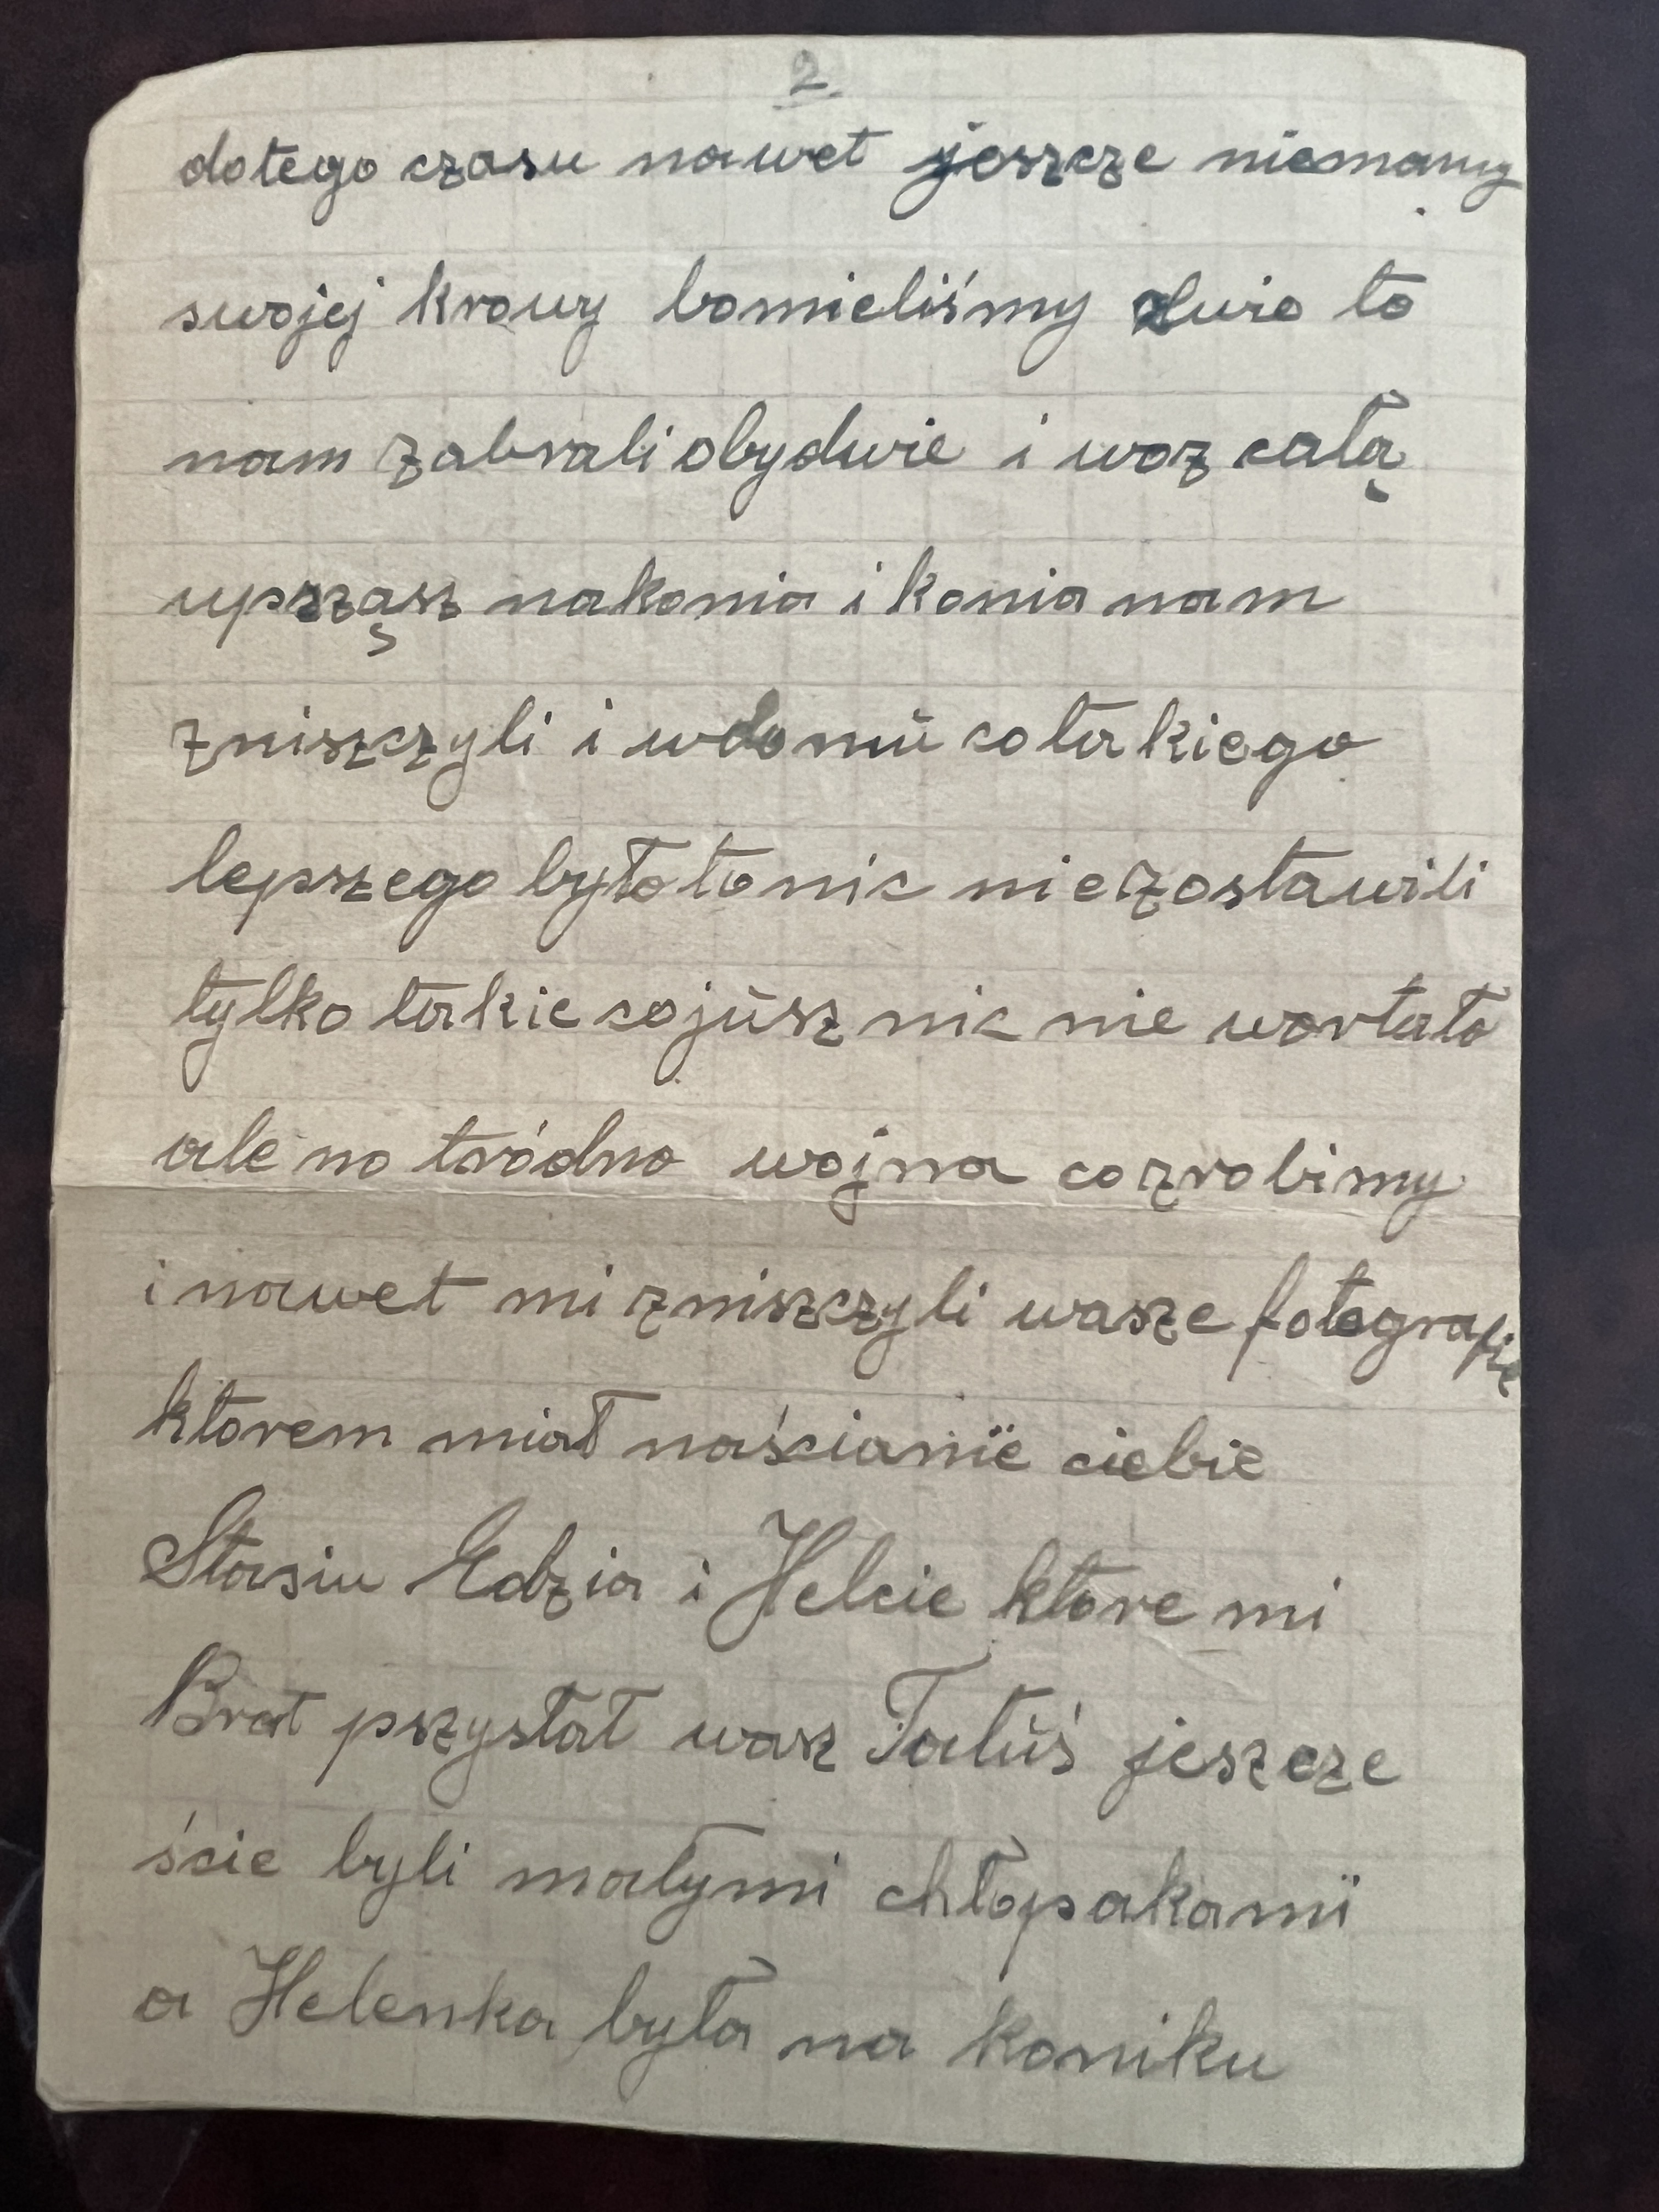 2.
dotego czasu nawet jeszcze niemamy
swojej krowy bomieliśmy dwie to
nam zabrali obydwie i woz całą
uprząsz nakonia i konia nam
zniszczyli i wdomŭ cotakiego
lepszego byłotonic niezostawili
tylko takie cojŭsz nic nie wartało
ale no tródno wojna cozrobimy
i nawet mi zniszczyli wasze fotografie
ktorem miał naścianie ciebie
Stasiu Edzia i Helcie ktore mi
Brat pszysłał wasz Tatŭś jeszcze
ście byli małymi chłopakami
a Helenka była na koniku